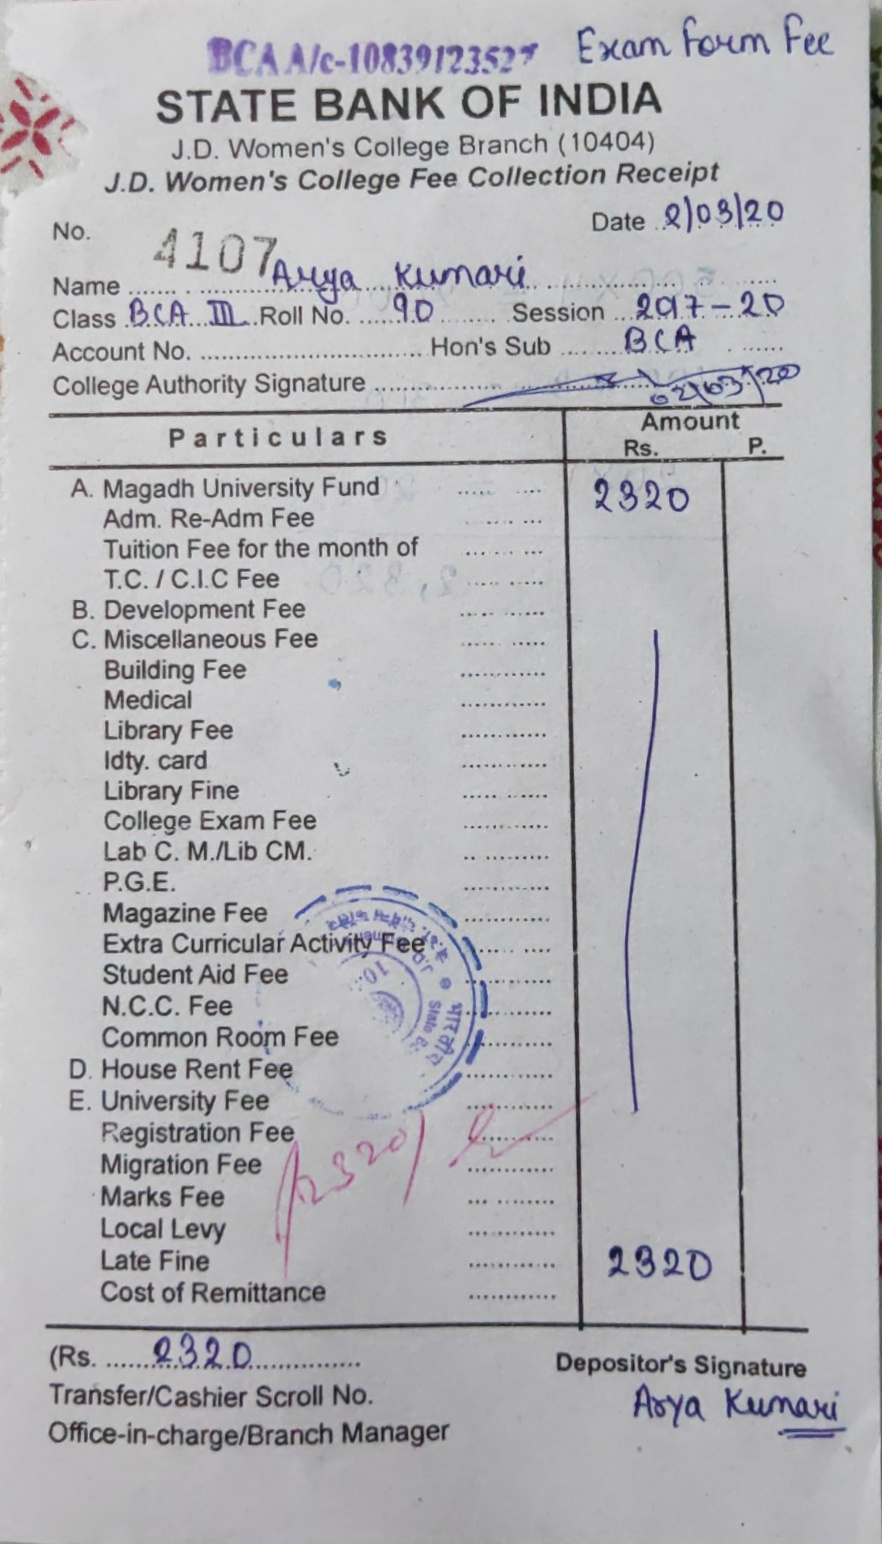 BCA A/c-10839123527 Exam Form Fee
STATE BANK OF INDIA
J.D. Women's College Branch (10404)
J.D. Women's College Fee Collection Receipt
No. 4107 Date 2/03/20
Name Arya Kumari
Class BCA III Roll No. 90 Session 2017-20
Account No. Hon's Sub BCA
College Authority Signature 02/03/20
Particulars Amount
Rs. P.
A. Magadh University Fund 2320
Adm. Re-Adm Fee
Tuition Fee for the month of
T.C. / C.I.C Fee
B. Development Fee
C. Miscellaneous Fee
Building Fee
Medical
Library Fee
Idty. card
Library Fine
College Exam Fee
Lab C. M./Lib CM.
P.G.E.
Magazine Fee
Extra Curricular Activity Fee
Student Aid Fee
N.C.C. Fee
Common Room Fee
D. House Rent Fee
E. University Fee
Registration Fee
2320/
Migration Fee
Marks Fee
Local Levy
Late Fine 2320
Cost of Remittance
(Rs. 2320
Depositor's Signature
Transfer/Cashier Scroll No.
Arya Kumari
Office-in-charge/Branch Manager